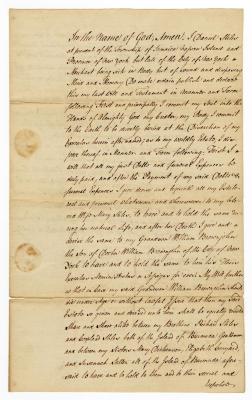 In the Name of God, Amen. I Daniel Stiles
at present of the Township of Jamaica Nassau Island and
Province of New york but late of the City of New york
Merchant being sick in Body but of sound and disposing
Mind and Memory Do make ordain publish and declare
this my last Will and Testament in Manner and Form
following First and principally I commit my Soul into the
Hands of Almighty God my Creator, my Body I commit
to the Earth to be decently buried at the Discretion of my
Executors herein after named, and as to my worldly Estate I dis-
pose thereof in Manner and Form following First I
will that all my just Debts and funeral Expences be
duly paid, and after the Payment of my said Debts &
funeral Expences I give devise and bequeath all my Estate
real and personal whatsoever and wheresoever to my belo-
ved Wife Mary Stiles, to have and to hold the same du-
ring her natural Life, and after her Death I give and
devise the same to my Grandson William
the Son of William of the City of New
York to have and to hold the same to him his Heirs
Executors Administrators & Assigns for ever. My Will further
is that in Case my said Grandson William should
die under Age or without lawful Issue that then my said
Estate so given and devised unto him shall be equally divided
Share and Share alike between my Brothers Richard Stiles
and Stiles both of the Island of Bermuda
and between my Sisters Mary Elizabeth
and Susannah all of the Island of Bermuda afore-
said to have and to hold to them and to their several and